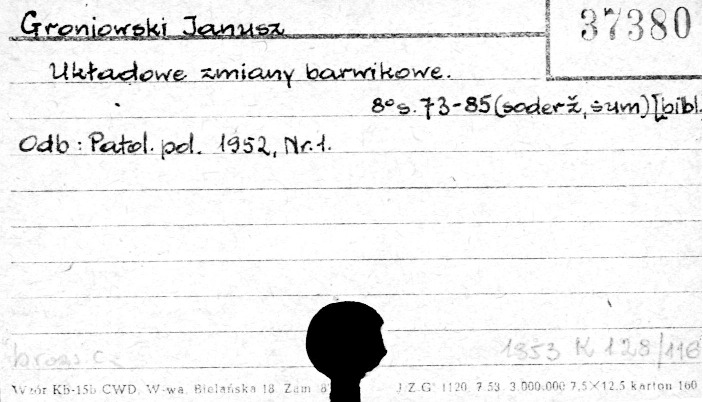 Groniowski Janusz
37380
Układowe zmiany barwikowe.
8° s. 73-85 (soderž, sum) [bibl.
Odb: Patol. pol. 1952, Nr. 1.
1953 K 128/116
Wzór Kb-15b CWD, W-wa, Bielańska 18 Zam
J.Z.G. 1120 7.53 3.000.000 7,5×12,5 karton 160